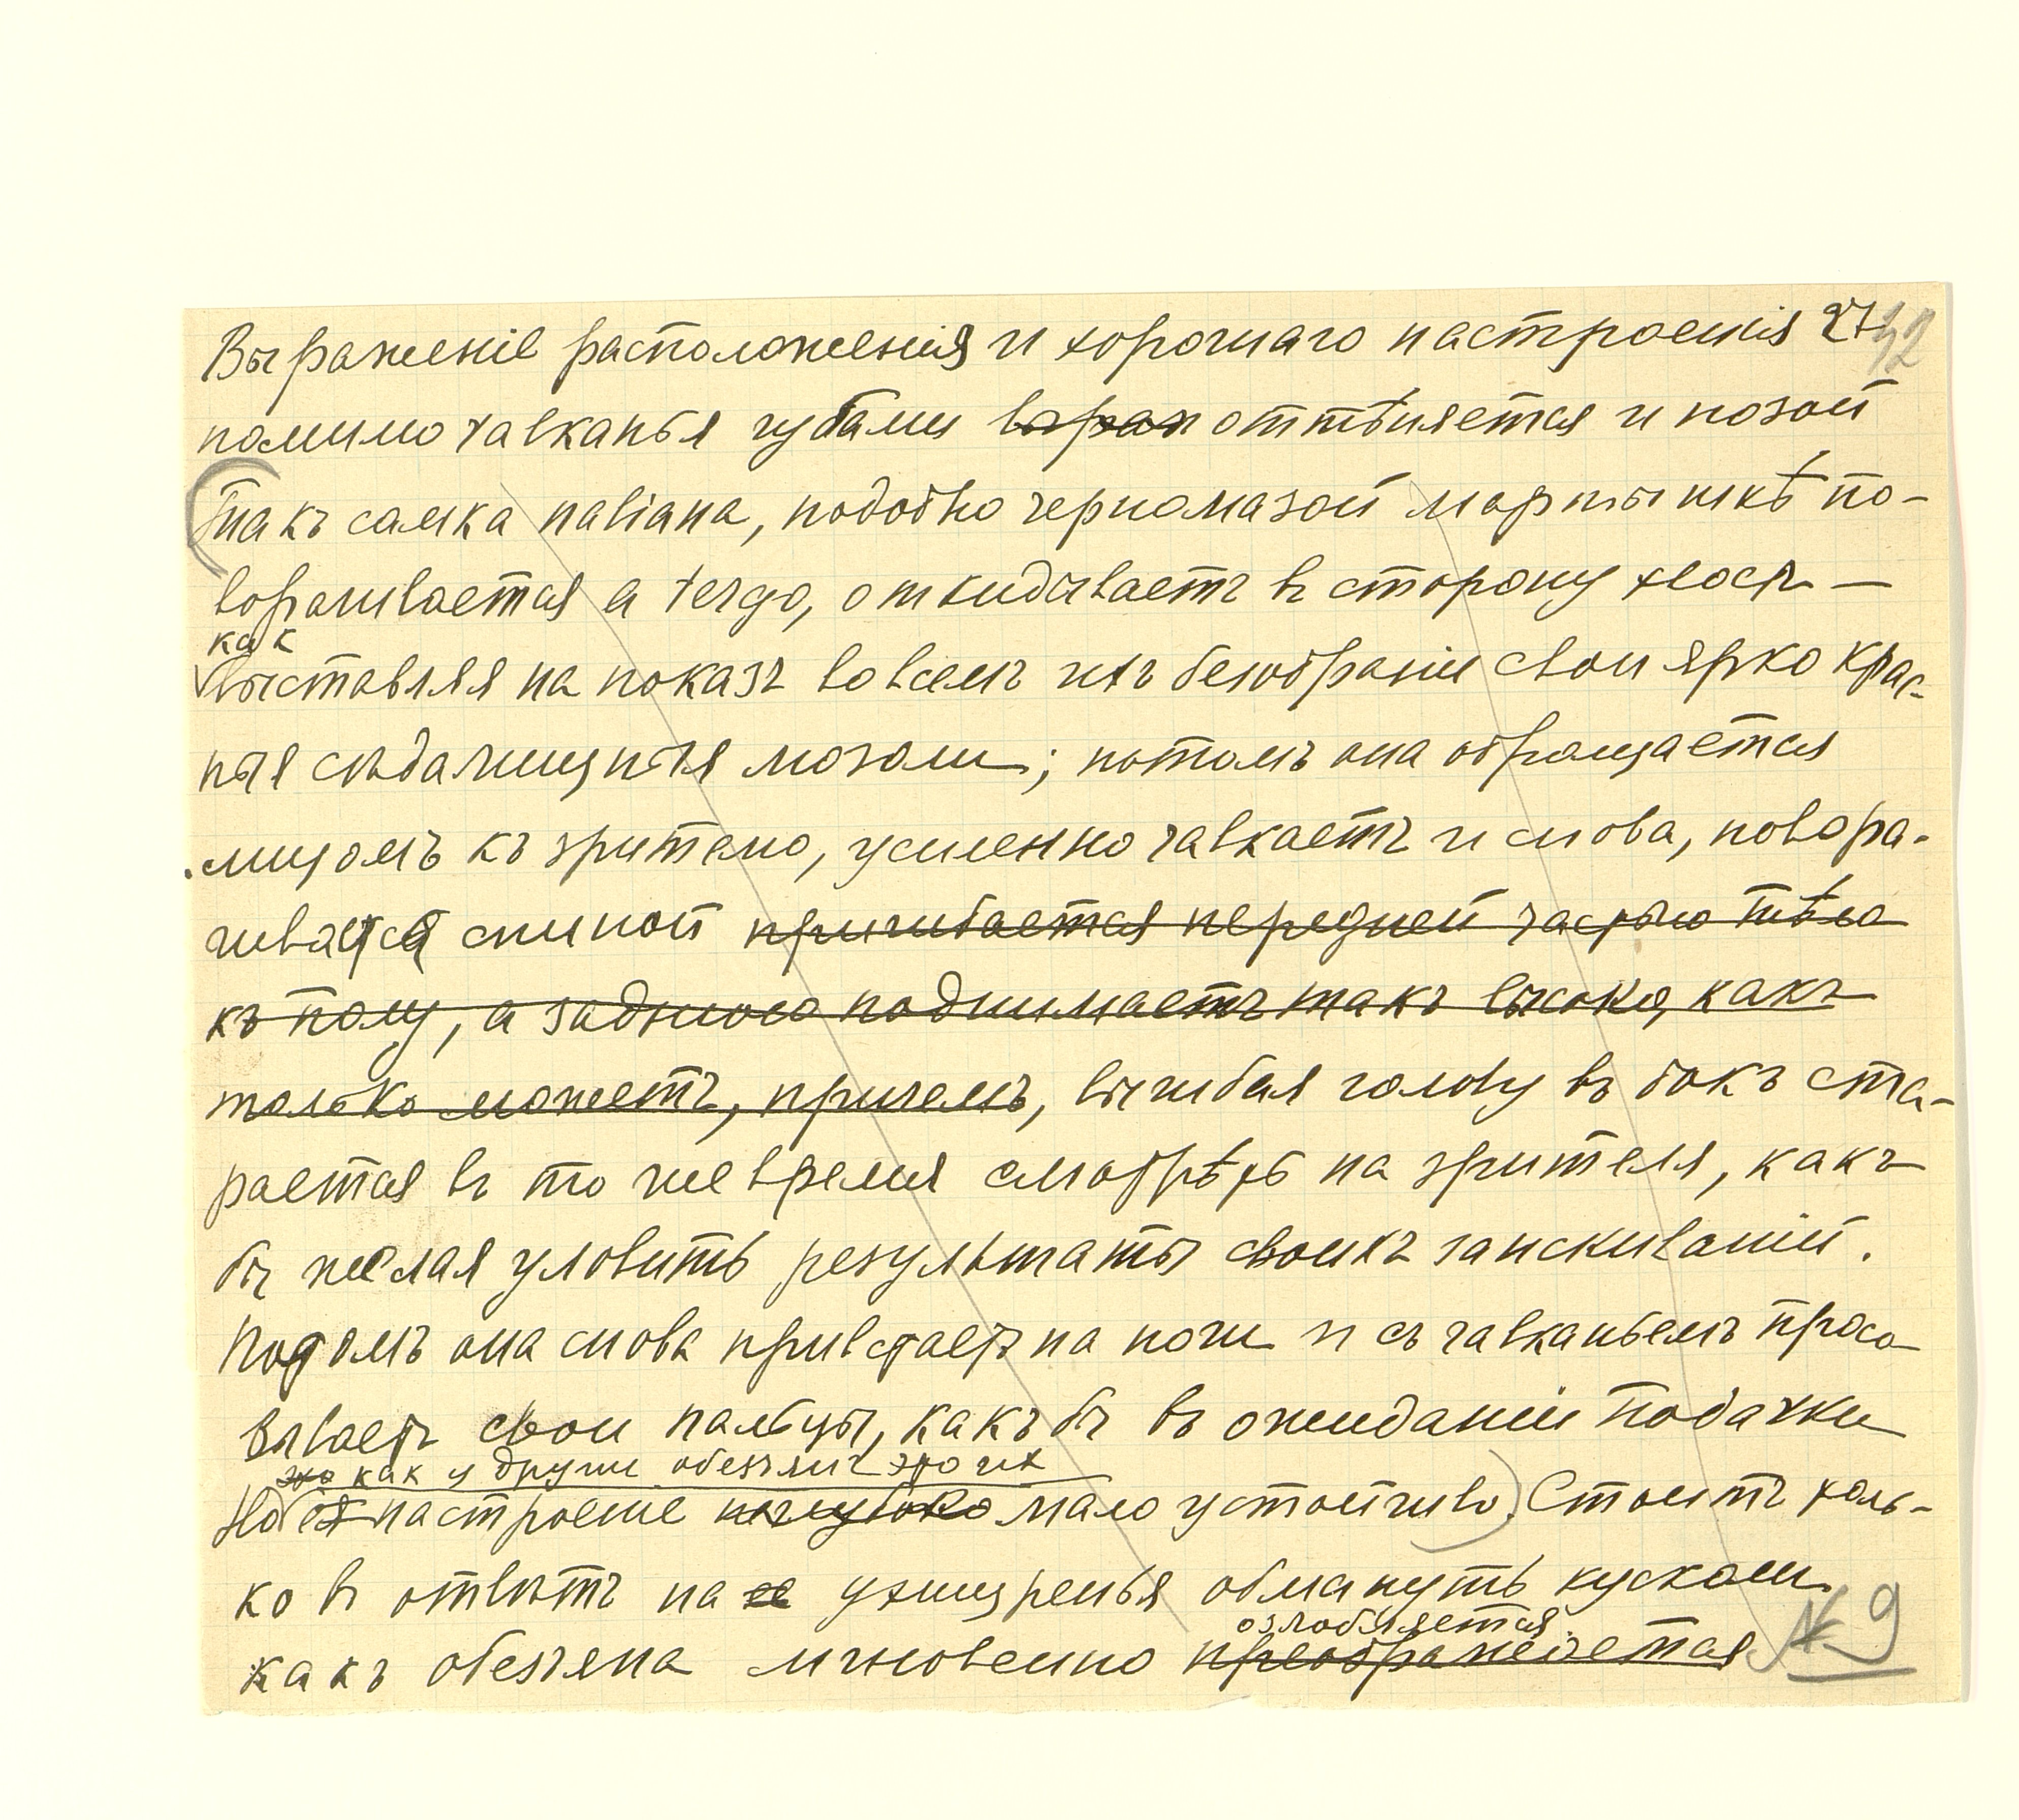 Выраженіе расположенія и хорошаго настроенія 27 32
помимо чавканья губами выраж оттѣняется и позой
Такъ самка павіана, подобно черномазой мартышкѣ по-
ворачивается a tergo, откидываетъ въ сторону хвостъ —
как
выставляя на показъ во всемъ ихъ безобразіи свои ярко крас-
ныя сѣдалищныя мозоли; потомъ она обращается
лицомъ къ зрителю, усиленно чавкаетъ и снова, повора-
чиваясь спиной пригибается передней частью тѣла
къ полу, а заднюю поднимаетъ такъ высоко, какъ
только можетъ, причемъ, выгибая голову въ бокъ ста-
рается въ то же время смотрѣть на зрителя, какъ
бы желая уловить результаты своихъ заискиваній.
Потомъ она снова привстаетъ на ноги и съ чавканьемъ просо-
вываетъ свои пальцы, какъ бы въ ожиданіи подачки
это как у других обезьян это их
Но ея настроение мало устойчиво). Стоитъ толь-
ко въ отвѣтъ на ее ухищренья обмануть кускомъ
озлобляется.
какъ обезьяна мгновенно преображается № 9